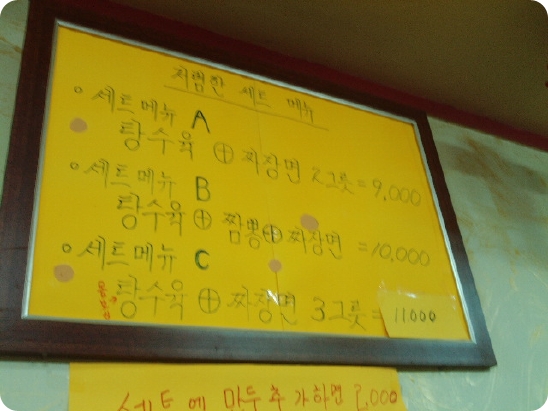 저렴한 세트 메뉴
세트메뉴 A
탕수육 ⊕ 짜장면 2그릇 = 9,000
세트메뉴 B
탕수육 ⊕ 짬뽕 ⊕ 짜장면 = 10,000
세트메뉴 C
탕수육 ⊕ 짜장면 3그릇 = 11000
세트에 만두추가하면 2,000